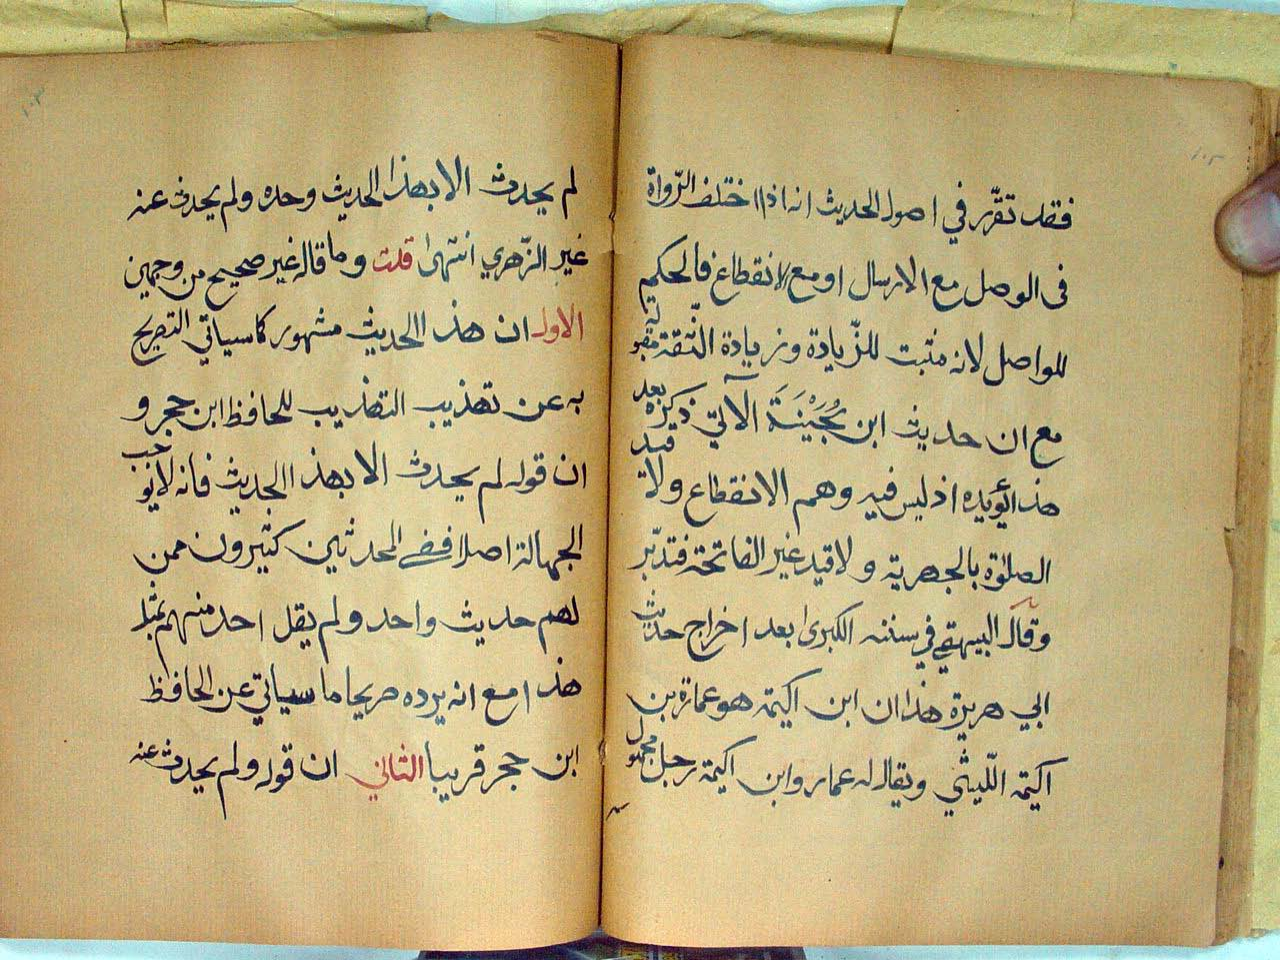 فقد تقرّر في اصول الحديث انه اذا اختلف الرّواة
فى الوصل مع الارسال او مع الانقطاع فالحكم
للواصل لانه مثبت للزّيادة وزيادة الثّقة مقبولة
مع ان حديث ابن بُحَيْنَةَ الآتي ذكره بعد
هذا يؤيده اذ ليس فيه وهم الانقطاع ولا قيد
الصلوٰة بالجهرية ولا قيد غير الفاتحة فتدبّر
وقال البيهقي في سننه الكبرىٰ بعد اخراج حديث
ابي هريرة هذا ان ابن اكيمة هو عمارة بن
اكيمة اللّيثي ويقال له عمار وابن اكيمة رجل مجهول
لم يحدث الا بهذا الحديث وحده ولم يحدث عنه
غير الزّهري انتهىٰ قلت وما قاله غير صحيح من وجهين
الاول ان هذا الحديث مشهور كما سياتي التصريح
به عن تهذيب التهذيب للحافظ ابن حجر و
ان قوله لم يحدث الا بهذا الحديث فانه لا يوجب
الجهالة اصلا ففي المحدثين كثيرون ممن
لهم حديث واحد ولم يقل احد منهم بمثل
هذا مع انه يرده صريحا ما سياتي عن الحافظ
ابن حجر قريبا الثاني ان قوله ولم يحدث عنه